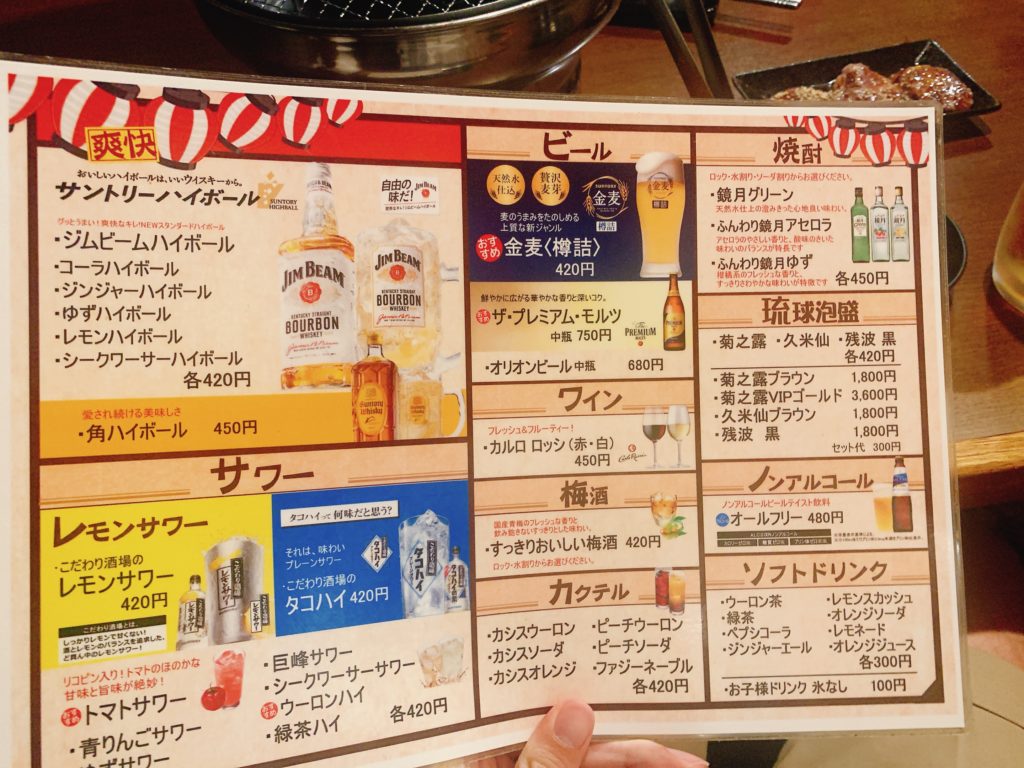 爽快
おいしいハイボールは、いいウイスキーから。
サントリーハイボール
SUNTORY
HIGHBALL
自由の
味だ!
JIM BEAM
グッとうまい!爽快なキレ!NEWスタンダードハイボール
・ジムビームハイボール
・コーラハイボール
・ジンジャーハイボール
・ゆずハイボール
・レモンハイボール
・シークワーサーハイボール
各420円
JIM BEAM
KENTUCKY STRAIGHT
BOURBON
WHISKEY
JIM BEAM
KENTUCKY STRAIGHT
BOURBON
WHISKEY
愛され続ける美味しさ
・角ハイボール 450円
Suntory
Whisky
サワー
レモンサワー
・こだわり酒場の
レモンサワー
420円
こだわり酒場とは、
しっかりレモンで甘くない!
酒とレモンのバランスを追求した、
ど真ん中のレモンサワー!
こだわり酒場の
レモンサワー
タコハイって何味だと思う?
それは、味わい
プレーンサワー
・こだわり酒場の
タコハイ 420円
タコハイ
リコピン入り!トマトのほのかな
甘味と旨味が絶妙!
おすすめ
・トマトサワー
・青りんごサワー
・ゆずサワー
・巨峰サワー
・シークワーサーサワー
おすすめ
・ウーロンハイ
・緑茶ハイ
各420円
ビール
天然水
仕込
贅沢
麦芽
SUNTORY
金麦
樽詰
麦のうまみをたのしめる
上質な新ジャンル
おすすめ
金麦〈樽詰〉
420円
金麦
樽詰
鮮やかに広がる華やかな香りと深いコク。
おすすめ
ザ・プレミアム・モルツ
中瓶 750円
The
PREMIUM
MALT'S
・オリオンビール 中瓶 680円
ワイン
フレッシュ&フルーティー!
・カルロ ロッシ(赤・白)
450円
Carlo Rossi
梅酒
国産青梅のフレッシュな香りと
飲み飽きないすっきりとした味わい。
・すっきりおいしい梅酒 420円
ロック・水割りからお選びください。
カクテル
・カシスウーロン
・カシスソーダ
・カシスオレンジ
・ピーチウーロン
・ピーチソーダ
・ファジーネーブル
各420円
焼酎
ロック・水割り・ソーダ割りからお選びください。
・鏡月グリーン
天然水仕上の澄みきった心地良い味わい。
・ふんわり鏡月アセロラ
アセロラのやさしい香りと、酸味のきいた
味わいのバランスが特長です
・ふんわり鏡月ゆず
柑橘系のフレッシュな香りと、
すっきりさわやかな味わいが特徴です
各450円
琉球泡盛
・菊之露 ・久米仙 ・残波 黒
各420円
・菊之露ブラウン 1,800円
・菊之露VIPゴールド 3,600円
・久米仙ブラウン 1,800円
・残波 黒 1,800円
セット代 300円
ノンアルコール
ノンアルコールビールテイスト飲料
・オールフリー 480円
ALC.0.00%ノンアルコール
カロリーゼロ 糖質ゼロ プリン体ゼロ
ソフトドリンク
・ウーロン茶
・緑茶
・ペプシコーラ
・ジンジャーエール
・レモンスカッシュ
・オレンジソーダ
・レモネード
・オレンジジュース
各300円
・お子様ドリンク 氷なし 100円